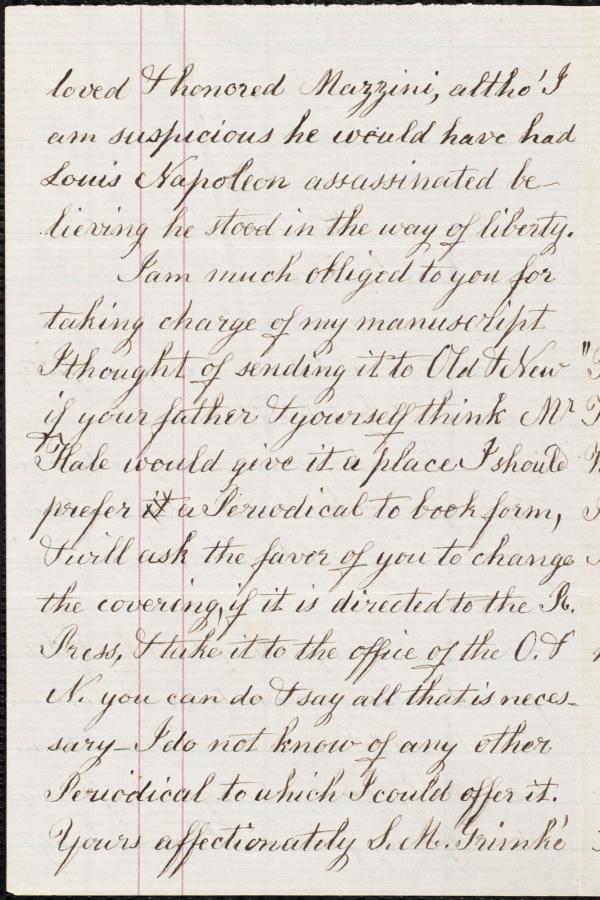 loved & honored Mazzini, altho' I
am suspicious he would have had
Louis Napoleon assassinated be-
lieving he stood in the way of liberty.
I am much obliged to you for
taking charge of my manuscript
I thought of sending it to Old & New
if your father & yourself think Mr
Hale would give it a place I should
prefer it a Periodical to book form,
& will ask the favor of you to change
the covering, if it is directed to the R.
Press, & take it to the office of the O. &
N. you can do & say all that is neces-
sary - I do not know of any other
Periodical to which I could offer it.
Yours affectionately S. M. Grimké